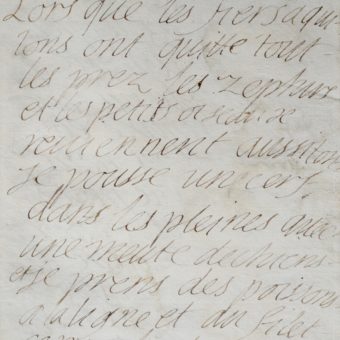 Lors que les fiers aqui-
lons ont quitté tout
les prez les zephirs
et les petits oiseaux
reuiennent aussitost
Je pousse un cerf
dans les pleines auec
une meute de chiens
et je prens des poissons
a la ligne et au filet